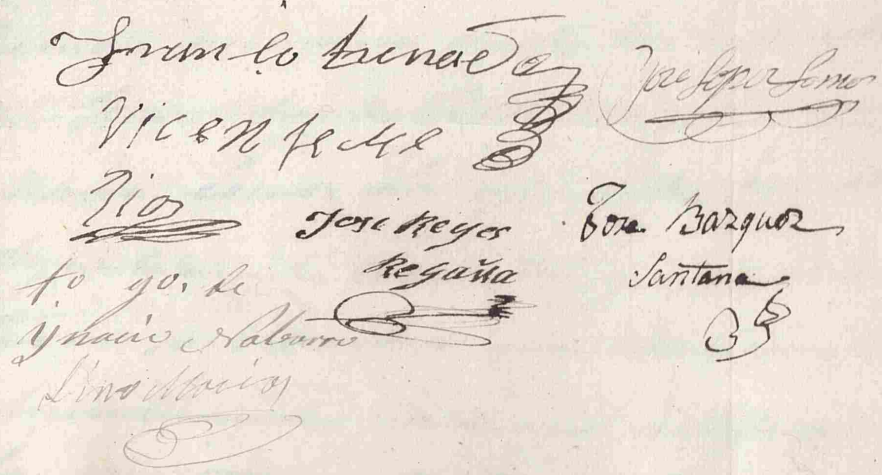 Jose Lopez Gomes
Vicente Me
Rios
Jose Reyes
Regaña
Jose Bazquez
Santana
to go. de
Ygnacio Nabarro
Lino Macias